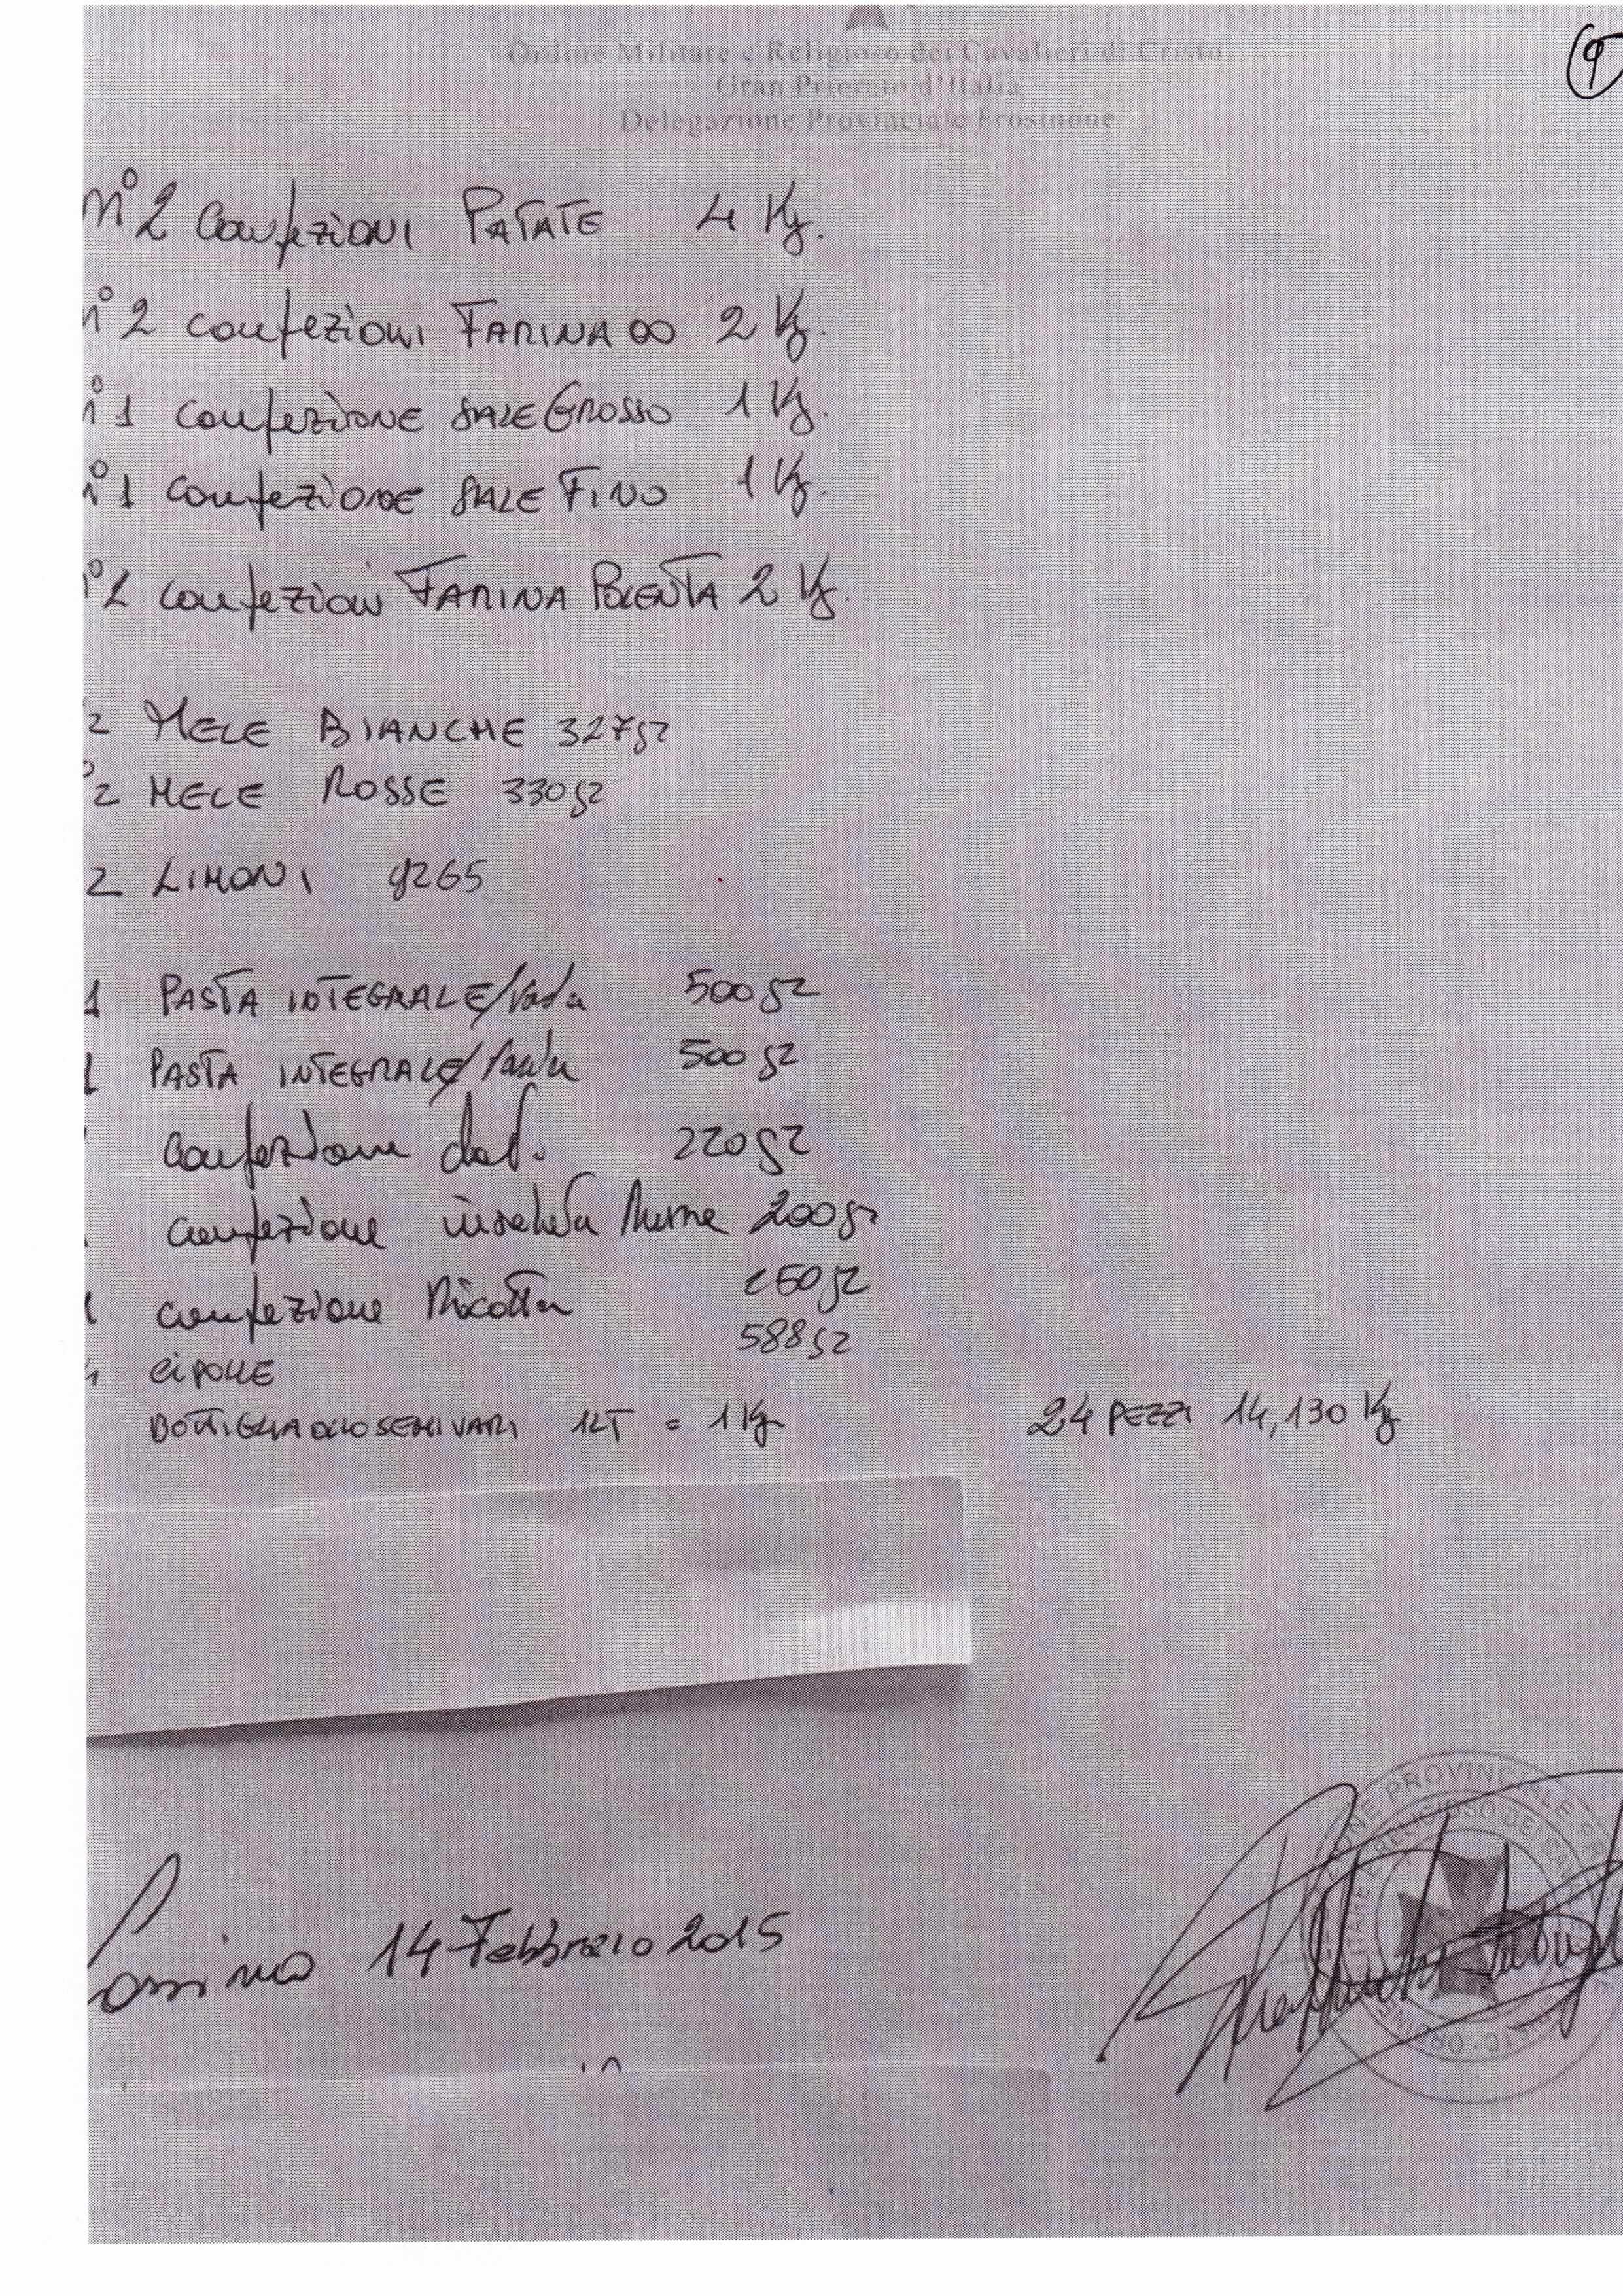 9
Ordine Militare e Religioso dei Cavalieri di Cristo
Gran Priorato d'Italia
Delegazione Provinciale Frosinone
n° 2 Confezioni PATATE 4 Kg.
n° 2 confezioni FARINA 00 2 Kg.
n° 1 confezione SALE GROSSO 1 Kg.
n° 1 confezione SALE FINO 1 Kg.
n° 2 confezioni FARINA POLENTA 2 Kg.
2 MELE BIANCHE 327gr
°2 MELE ROSSE 330gr
2 LIMONI g265
1 PASTA INTEGRALE/ 500gr
1 PASTA INTEGRALE/ 500gr
confezione dadi 220gr
confezione insalata 200gr
1 confezione Ricotta 250gr
4 CIPOLLE 588gr
BOTTIGLIA OLIO SEMI VARI 1LT = 1Kg
24 PEZZI 14,130 Kg
14 Febbraio 2015
ONE PROVINCIALE FR
RELIGIOSO DEI CAVA